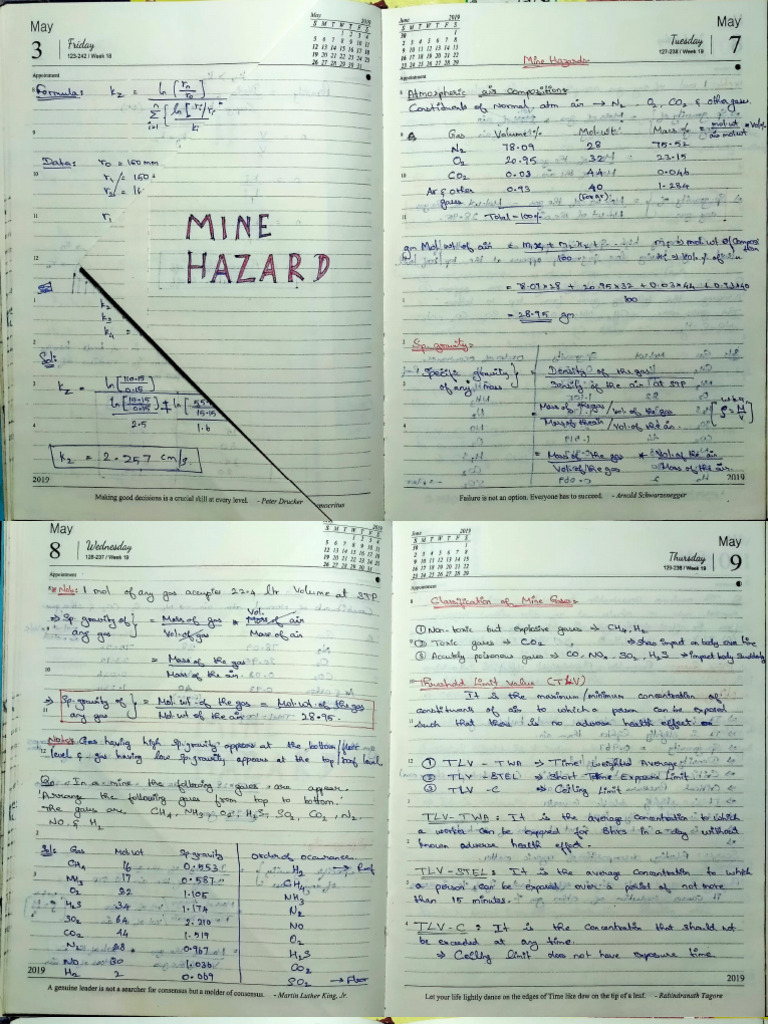 May
3 Friday
123-242 / Week 18
May 2019
S M T W T F S
1 2 3 4
5 6 7 8 9 10 11
12 13 14 15 16 17 18
19 20 21 22 23 24 25
26 27 28 29 30 31
Appointment
Formula: k2 = ln[rn/r0]
Data: r0 = 150mm
r1
r2 = 16
r1
MINE
HAZARD
k2
k3
k4 =
Sol:
k2 = ln[110.15/0.15]
ln[10.15/0.15] + ln[
2.5 1.6
k2 = 2.257 cm/s.
2019
Making good decisions is a crucial skill at every level. - Peter Drucker
June 2019
S M T W T F S
30 1
2 3 4 5 6 7 8
9 10 11 12 13 14 15
16 17 18 19 20 21 22
23 24 25 26 27 28 29
May
Tuesday 7
127-238 / Week 19
Mine Hazards
Appointment
Atmospheric air compositions
Constituents of Normal atm air → N2, O2, CO2 & other gases.
Gas Volume % Mol wt Mass % = mol wt / air mol wt * Vol %
N2 78.09 28 75.52
O2 20.95 32 23.15
CO2 0.03 44 0.046
Ar & other gases 0.93 40 (For Ar) 1.284
Total = 100%
gm Mol wt of air = m1x1 + m2x2 + m → mol wt of composition
100 x → Vol. % of
= 78.09x28 + 20.95x32 + 0.03x44 + 0.93x40
100
= 28.95 gm
Sp. gravity:
Specific gravity of any gas } = Density of the gas
Density of the air at STP
= Mass of the gas / Vol. of the gas
Mass of the air / Vol. of the air [when ρ = M/V]
= Mass of the gas * Vol. of the air
Vol. of the gas Mass of the air
2019
Failure is not an option. Everyone has to succeed. - Arnold Schwarzenegger
May
8 Wednesday
128-237 / Week 19
May 2019
S M T W T F S
1 2 3 4
5 6 7 8 9 10 11
12 13 14 15 16 17 18
19 20 21 22 23 24 25
26 27 28 29 30 31
Appointment
Note: 1 mol of any gas occupies 22.4 ltr Volume at STP
⇒ Sp. gravity of any gas } = Mass of gas * Vol. of air
Vol. of gas Mass of air
= Mass of the gas
Mass of the air
⇒ Sp. gravity of any gas } = Mol. wt. of the gas = Mol. wt. of the gas
Mol wt of the air 28.95
Note: Gas having high Sp. gravity appears at the bottom/floor
level & gas having low Sp. gravity appears at the top/roof level
Qn. In a mine the following gases are appear.
Arrange the following gases from top to bottom.
The gases are CH4, NH3, O2, H2S, SO2, CO2, N2,
NO & H2
Sol: Gas Mol wt Sp. gravity Order of occurance
CH4 16 0.553 H2 → Roof
NH3 17 0.587 CH4
O2 32 1.105 NH3
H2S 34 1.174 N2
SO2 64 2.210 NO
CO2 44 1.519 O2
N2 28 0.967 H2S
NO 30 1.036 CO2
H2 2 0.069 SO2 → Floor
2019
A genuine leader is not a searcher for consensus but a molder of consensus. - Martin Luther King, Jr.
June 2019
S M T W T F S
30 1
2 3 4 5 6 7 8
9 10 11 12 13 14 15
16 17 18 19 20 21 22
23 24 25 26 27 28 29
May
Thursday 9
129-236 / Week 19
Appointment
Classification of Mine Gases:
① Non-toxic but explosive gases → CH4, H2
② Toxic gases → CO2, → Has impact on body over time
③ Accutely poisonous gases → CO, NO2, SO2, H2S → impact body Suddenly
Threshold Limit Value (TLV)
It is the maximum/minimum concentration of
constituents of air to which a person can be exposed
such that there is no adverse health effect.
① TLV - TWA → Time weighted Average
② TLV - STEL → Short Time Exposure Limit
③ TLV - C → Ceiling Limit
TLV-TWA: It is the average concentration to which
a worker can be exposed for 8hrs in a day without
known adverse health effect.
TLV-STEL: It is the average Concentration to which
a person can be exposed over a period of not more
than 15 minutes.
TLV-C: It is the Concentration that should not
be exceeded at any time.
⇒ Ceiling Limit does not have exposure time
2019
Let your life lightly dance on the edges of Time like dew on the tip of a leaf. - Rabindranath Tagore